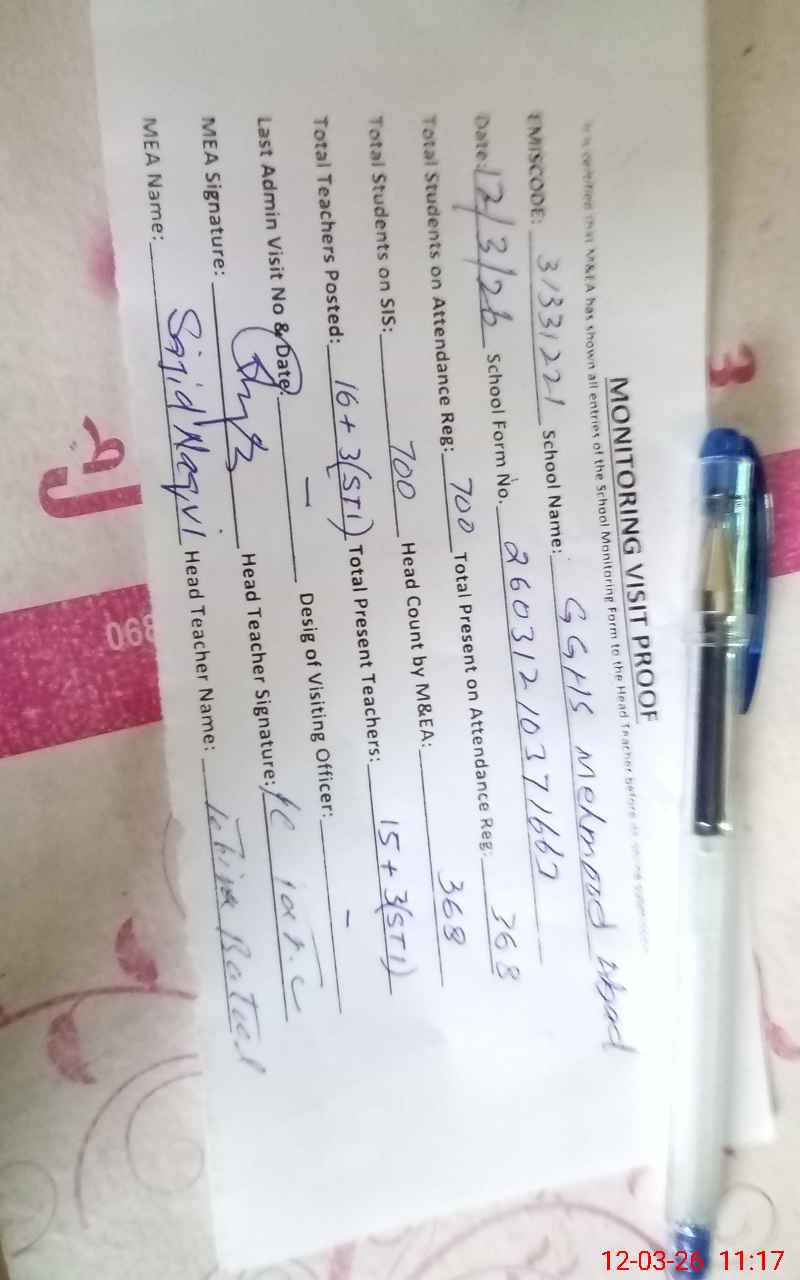 MONITORING VISIT PROOF
It is certified that M&EA has shown all entries of the School Monitoring Form to the Head Teacher before
EMISCODE: 31331221 School Name: GGHS Mehmood Abad
Date: 12/3/26 School Form No. 260312103716
Total Students on Attendance Reg: 700 Total Present on Attendance Reg: 368
Total Students on SIS: 700 Head Count by M&EA: 368
Total Teachers Posted: 16 + 3(STI) Total Present Teachers: 15 + 3(STI)
Last Admin Visit No & Date: — Desig of Visiting Officer: –
MEA Signature: Head Teacher Signature:
MEA Name: Sajid Naqvi Head Teacher Name:
3
068
12-03-26 11:17